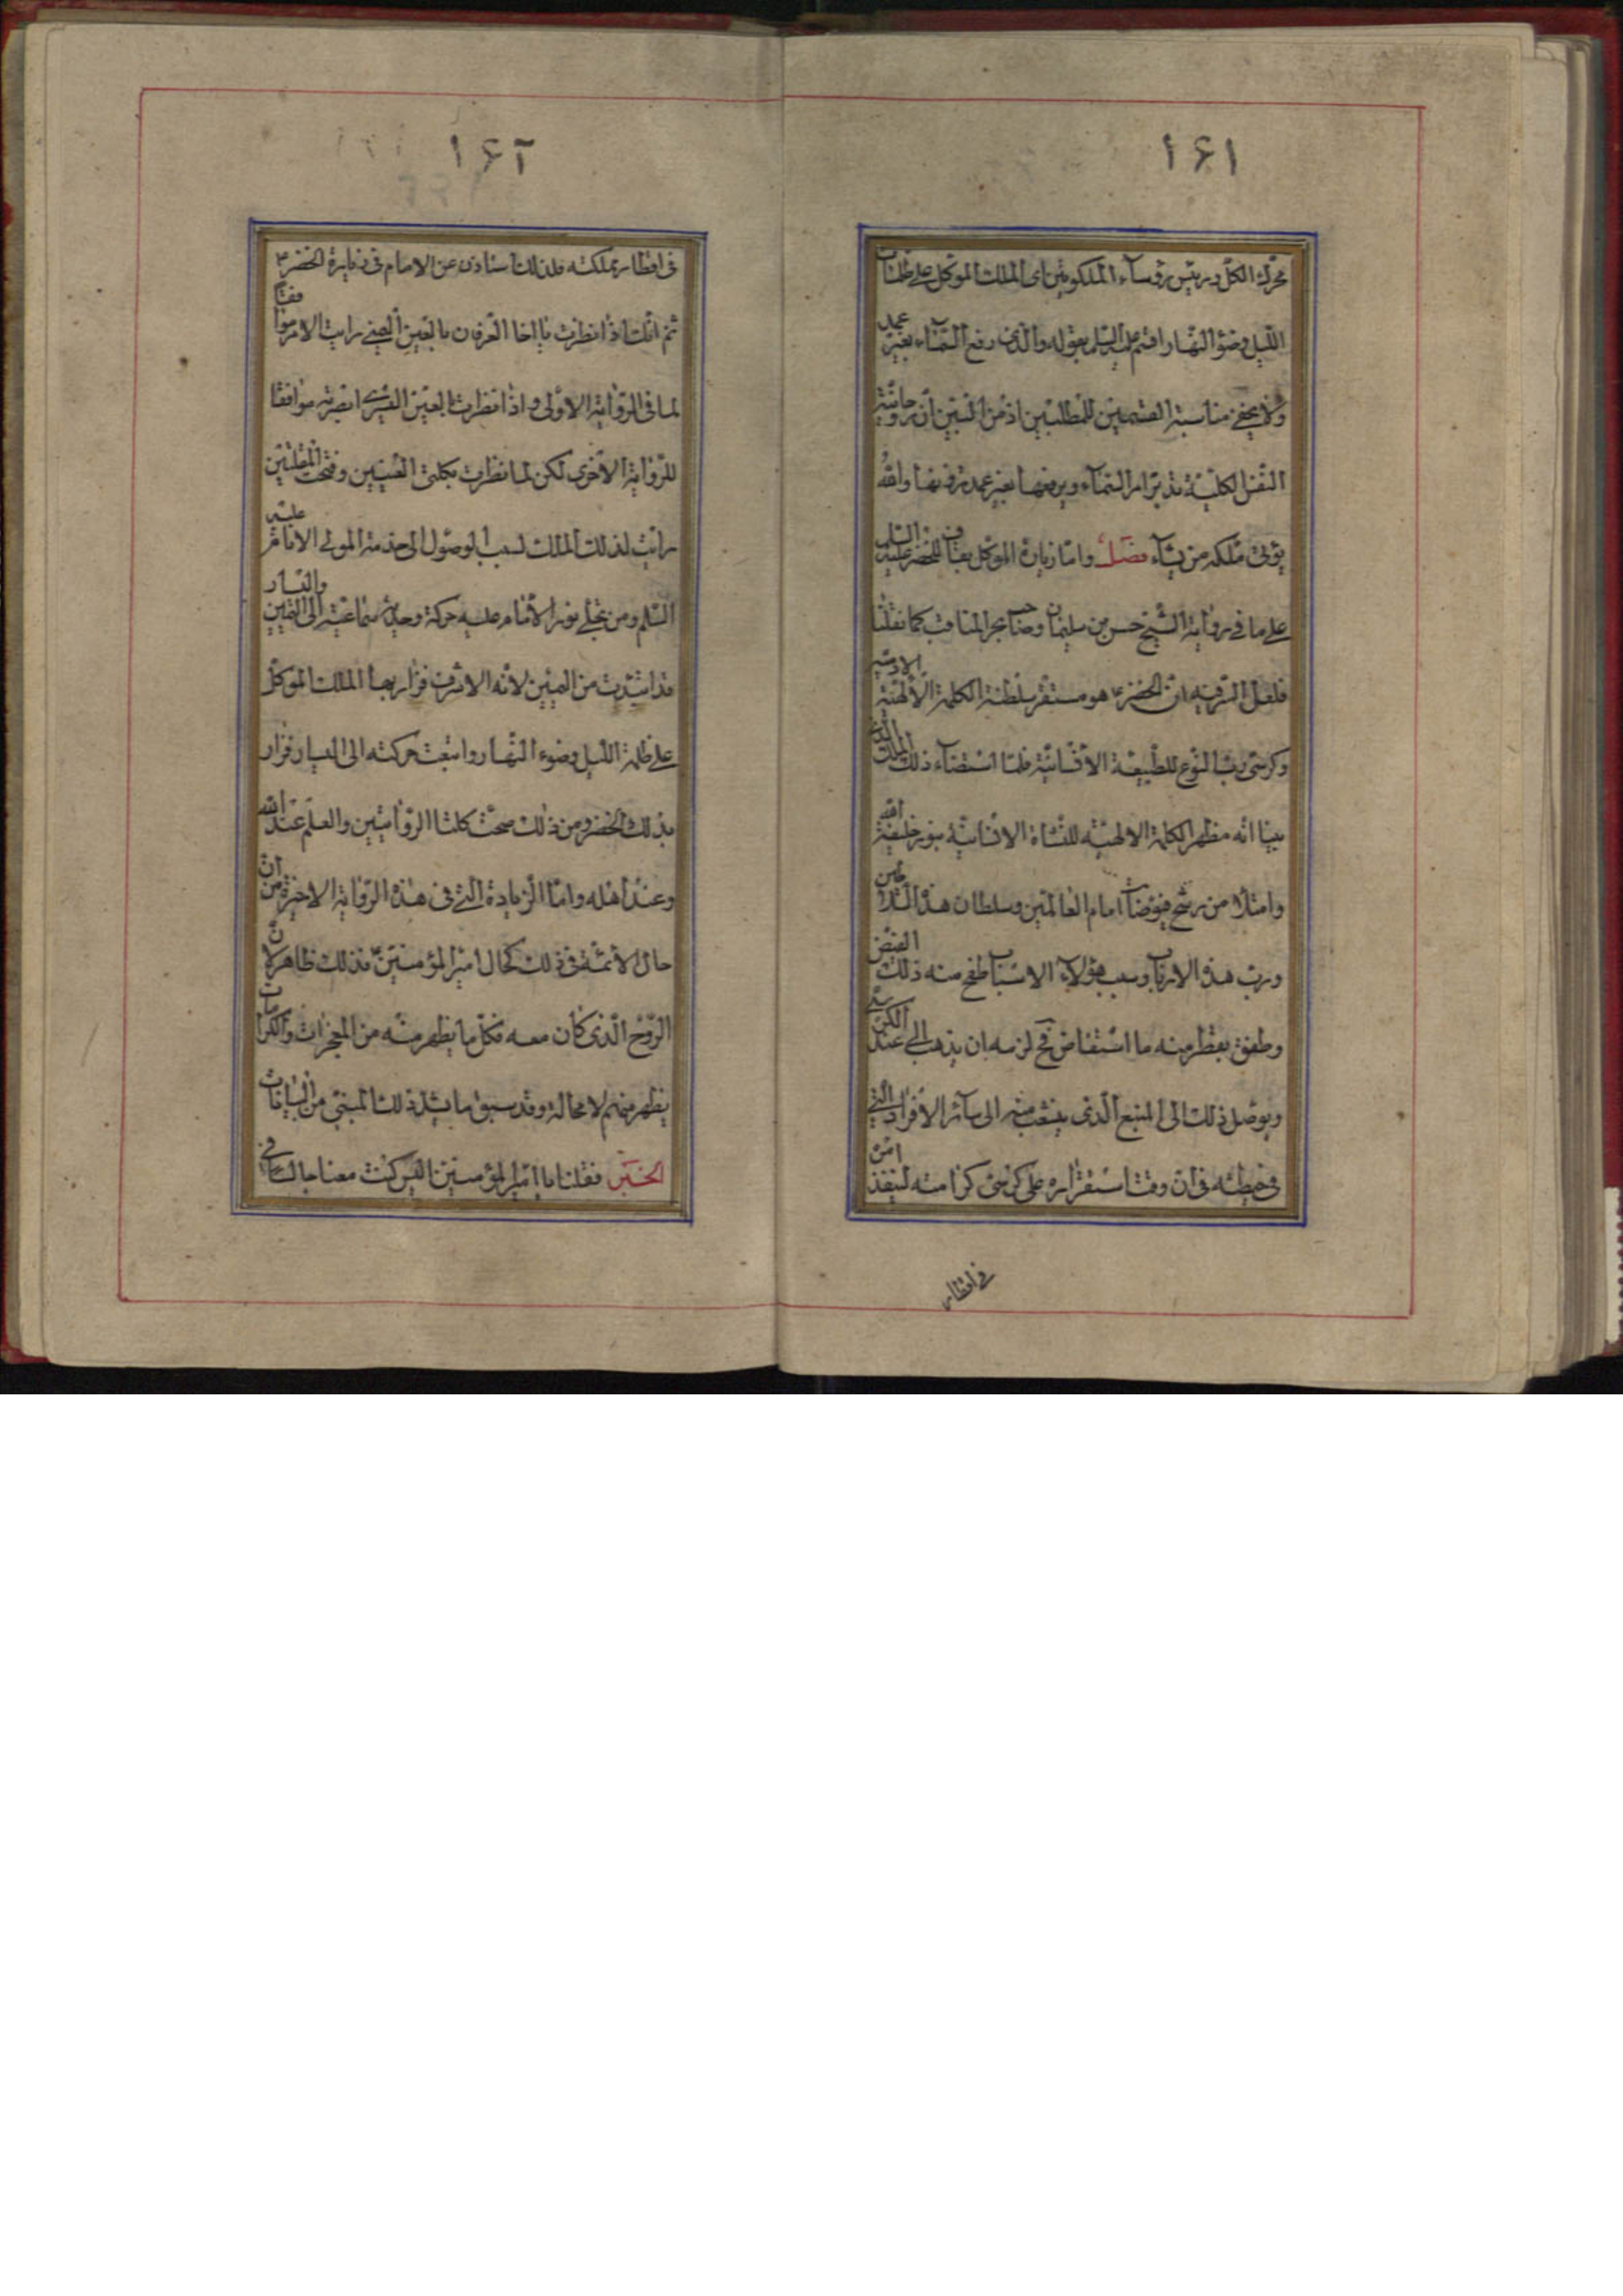 ١٦١
محرك الكل ورئيس رؤساء الملكوتيين اى الملك الموكل على ظلمات
الليل وضوء النهار اقسم عليه السلم بقوله والذى رفع السماء بغير عمد
ولا يخفى مناسبة القسمين للمطلبين اذ من البين ان روحانية
النفس الكلية تدبر امر السماء ويرفعها بغير عمد ترونها والله
يؤتى ملكه من يشاء فصل واما زيارة الموكل بقاف للخضر عليه السلم
على ما فى رواية الشيخ حسن بن سليمان وصاحب بحر المناقب كما نقلنا
فلعل السر فيه ان الخضر ع هو مستقر سلطنة الكلمة الالهية
وكرسى رب النوع للطبيعة الانسانية فلما استضاء ذلك الملك الذى
بينا انه مظهر الكلمة الالهية للنشاة الانسانية بنور خليفة الله
وامتلا من رشح فيوضات امام العالمين وسلطان هذه
ورب هذه الارباب وسبب هؤلاء الاسباب طفح منه ذلك الفيض
وطفق يقطر منه ما استفاض فح لزمه ان يذهب الى عند الكرسى
ويوصل ذلك الى المنبع الذى ينشعب منه الى سائر الافراد التى
فى حيطته فى ان وقت استقراره على كرسى كرامته لينفذ امره
فى اقطار
١٦٢
فى اقطار مملكته فلذلك استاذن عن الامام فى زيارة الخضر ع
ثم انك اذا نظرت يا اخا العرفان بالعين اليمنى رايت الامر موافقا
لما فى الرواية الاولى واذا نظرت بالعين اليسرى ابصرته موافقا
للرواية الاخرى لكن لما نظرت بكلتى العينين وفتحت المقلتين
رايت لذلك الملك لسبب الوصول الى خدمة المولى الامام عليه
السلم ومن تجلى نور الامام عليه حركة وجدية سماعية الى اليمين واليسار
قد ابتدت من اليمين لانه الاشرف فزار بها الملك الموكل
على ظلمة الليل وضوء النهار وانبعث حركته الى اليسار فزار
بذلك الخضر ومن ذلك صحت كلتا الروايتين والعلم عند الله
وعند اهله واما الزيادة التى فى هذه الرواية الاخيرة من ان
حال الائمة فى ذلك كحال امير المؤمنين ع فذلك ظاهر لان
الروح الذى كان معه فكل ما يظهر منه من المعجزات والكرامات
يظهر منهم لا محالة وقد سبق ما يشيد ذلك المبنى من البيانات
الخبر فقلنا يا امير المؤمنين اليس كنت معنا جالسا فى